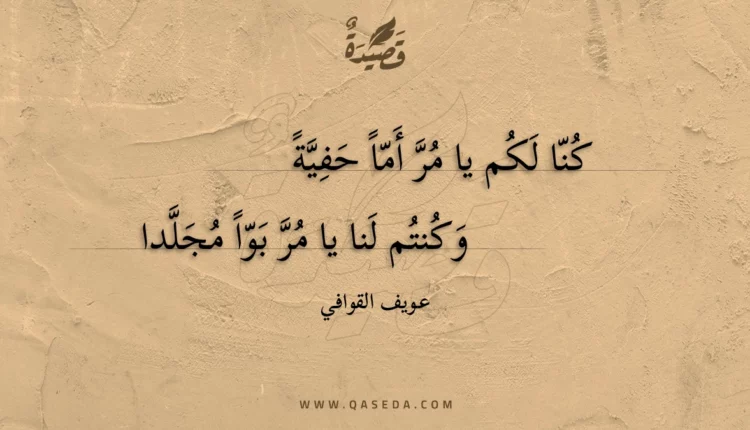 قَصِيدَةٌ
كُنّا لَكُم يا مُرَّ أَمّاً حَفِيَّةً
وَكُنتُم لَنا يا مُرَّ بَوّاً مُجَلَّدا
عويف القوافي
WWW.QASEDA.COM